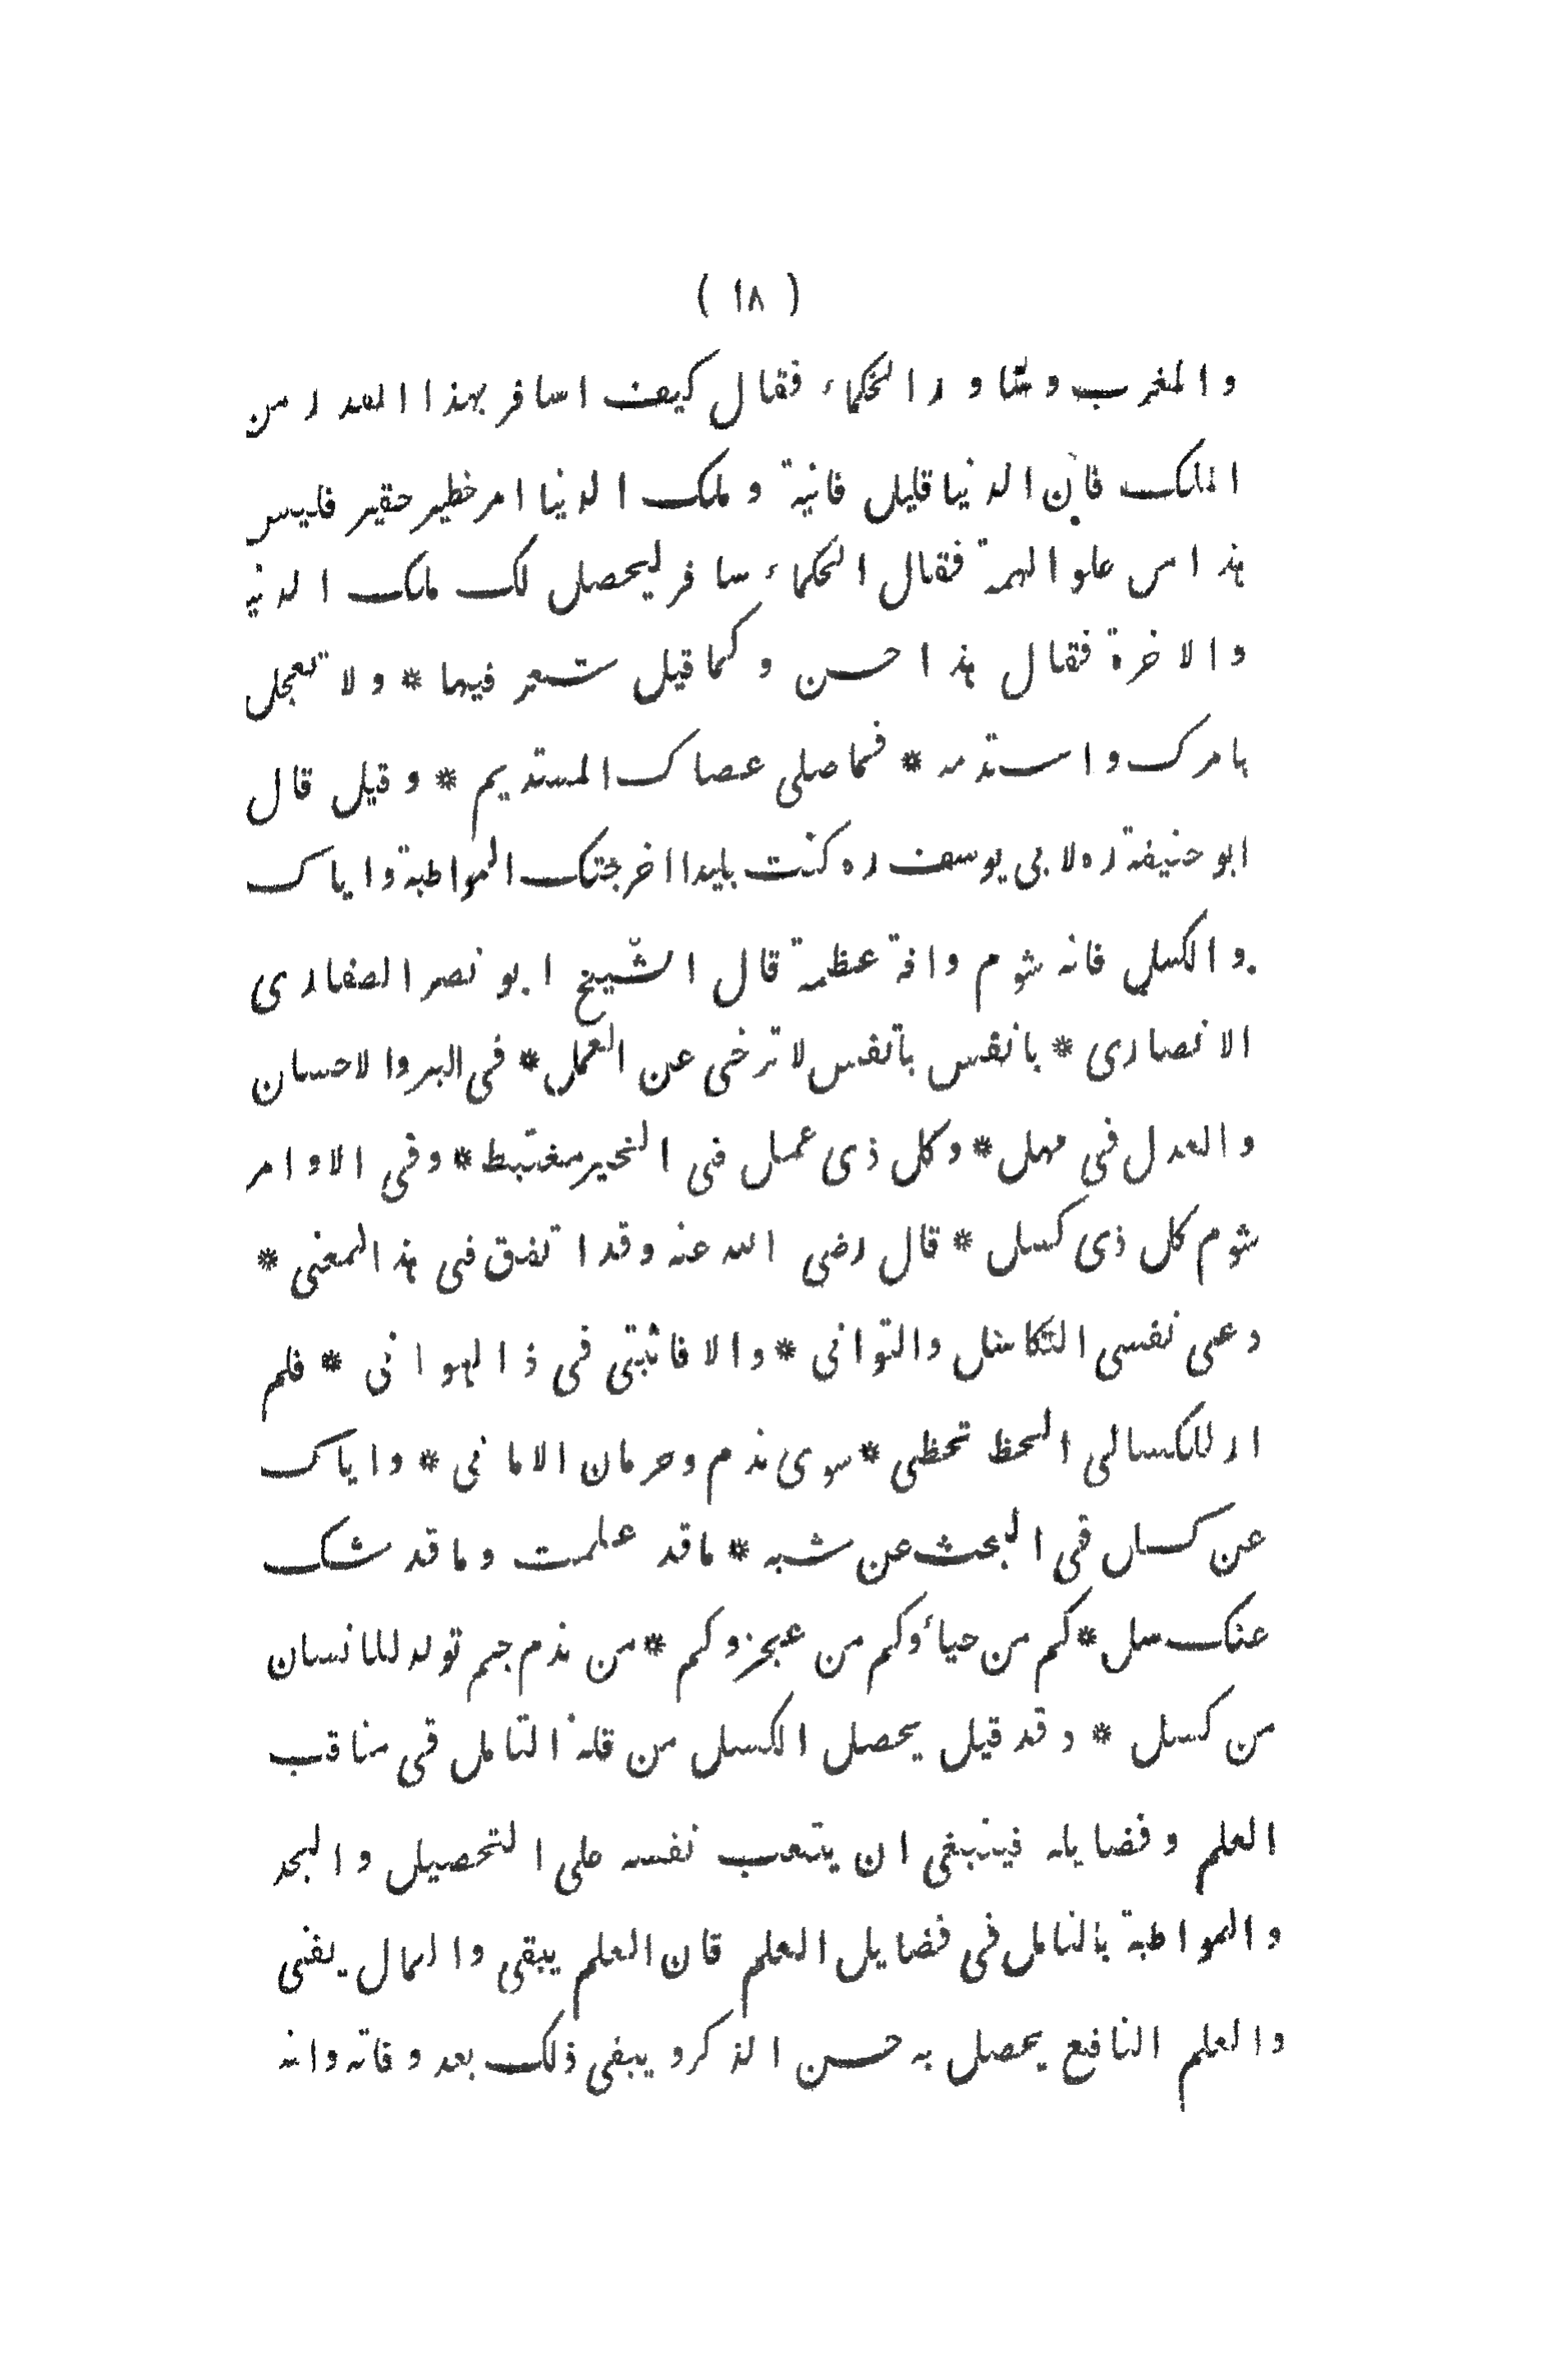 ( ١٨ )
والمغرب وشاور الحكماء فقال كيف اسافر بهذا القدر من
الملك فان الدنيا قليل فانية وملك الدنيا امر خطير حقير فليس
هذا من علو الهمة فقال الحكماء سافر ليحصل لك ملك الدنيا
والاخرة فقال هذا حسن وكما قيل شعر فيها * ولا تعجل
بامرك واستدمه * فما صلى عصاك المستديم * وقيل قال
ابو حنيفة ره لابي يوسف ره كنت بليدا اخرجتك المواظبة واياك
والكسل فانه شوم وافة عظمة قال الشيخ ابو نصر الصفاري
الانصاري * يا نفس يا نفس لا ترخي عن العمل * في البر والاحسان
والعدل في مهل * وكل ذي عمل في الخير مغتبط * وفي الاوامر
شوم كل ذي كسل * قال رضي الله عنه وقد اتفق في هذ المعنى *
دعى نفسي التكاسل والتواني * والا فاثبتي في ذا الهواني * فلم
ار للكسالى الحظ تحظى * سوى ندم وحرمان الاماني * واياك
عن كسل في البحث عن شبه * ما قد علمت وما قد شك
عنك سل * كم من حياء وكم من عجز وكم * من ندم جم تولد للانسان
من كسل * وقد قيل يحصل الكسل من قلة التامل في مناقب
العلم وفضايله فينبغي ان يتعب نفسه على التحصيل والجد
والمواظبة بالتامل في فضايل العلم فان العلم يبقى والمال يفنى
والعلم النافع يحصل به حسن الذكر ويبقى ذلك بعد وفاته وانه